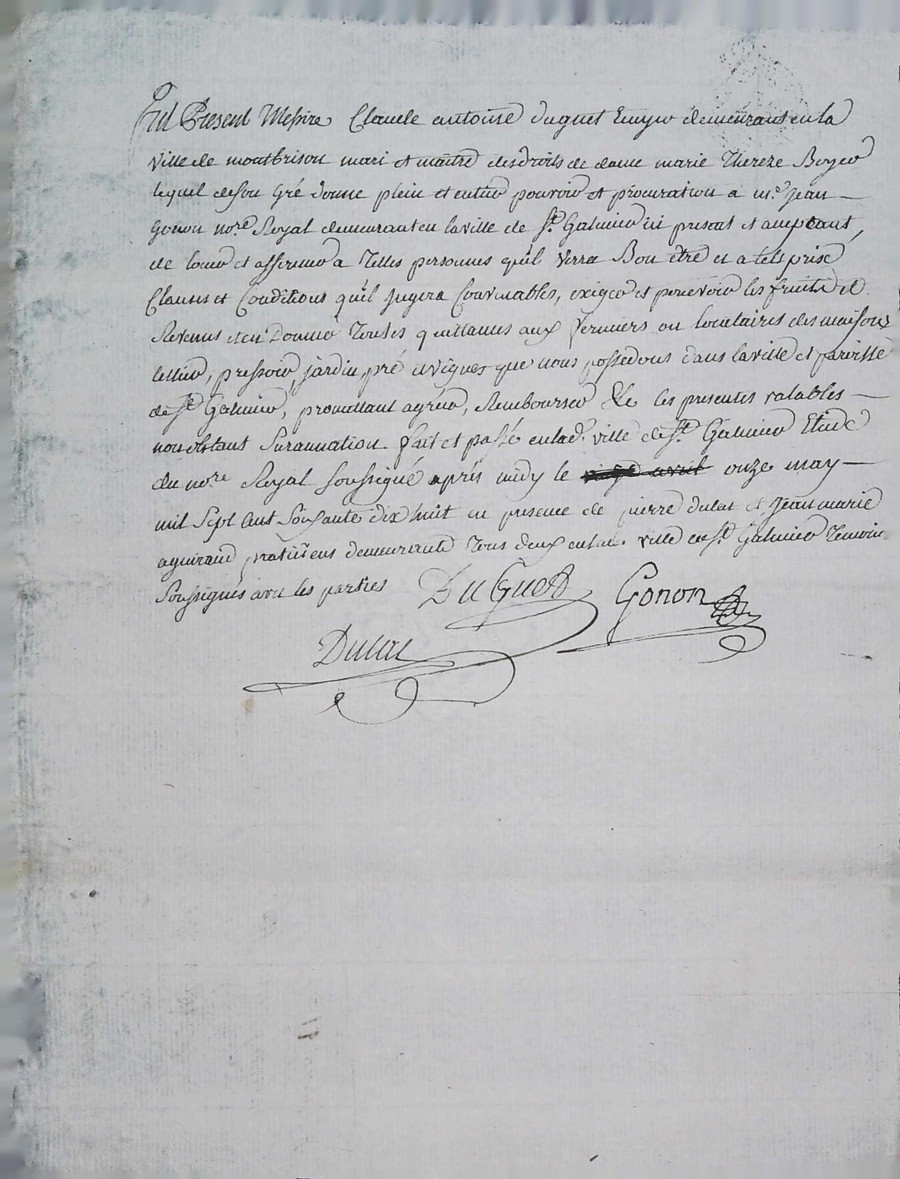 Fut Present Messire Claude antoine duguet Ecuyer demeurant en la
ville de montbrison mari et maitre des droits de dame marie Thereze Boyer
lequel de son Gré donne plein et entier pouvoir et procuration a m.e Jean
Gonon no.re Royal demeurant en la ville de S.t Galmier ici present et acceptant,
de louer et affermer a Telles personnes quil verra Bon être et a tels prix
Clauses et Conditions quil Jugera Convenables, exiger et percevoir les fruits et
Revenus et en Donner Toutes quittances aux fermiers ou locataires des maisons
cellier, pressoir, jardin, pré et vignes que nous possedons dans la ville et paroisse
de S.t Galmier, promettant agréer, Rembourser &c les presentes valables
nonobstant Surannation. fait et passé en lad. ville de S.t Galmier Etude
du no.re Royal soussigné après midy le onze may
mil Sept Cent Soixante dix huit en presence de pierre dulac et Jean marie
praticiens demeurants Tous deux en lad. ville de S.t Galmier Temoins
Soussignés avec les parties DuGuet Gonon
Dulac